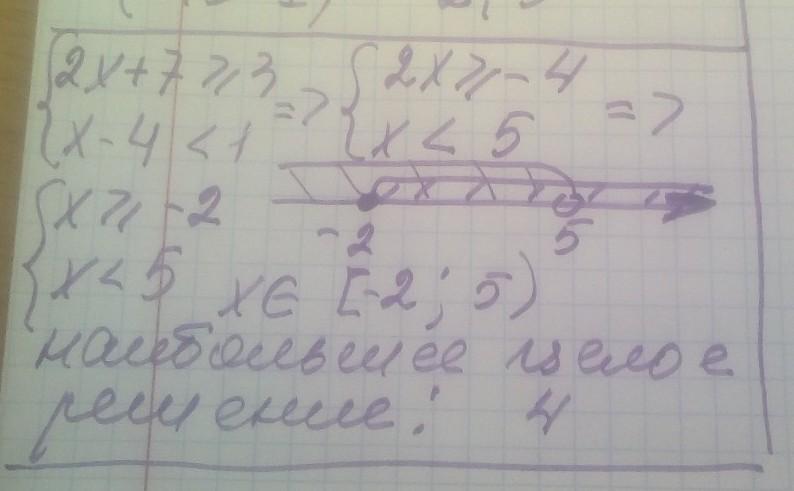 {2x+7≥3 => {2x≥-4 =>
{x-4<1 {x<5
{x≥-2
-2 5
{x<5 x∈ [-2; 5)
наибольшее целое
решение: 4